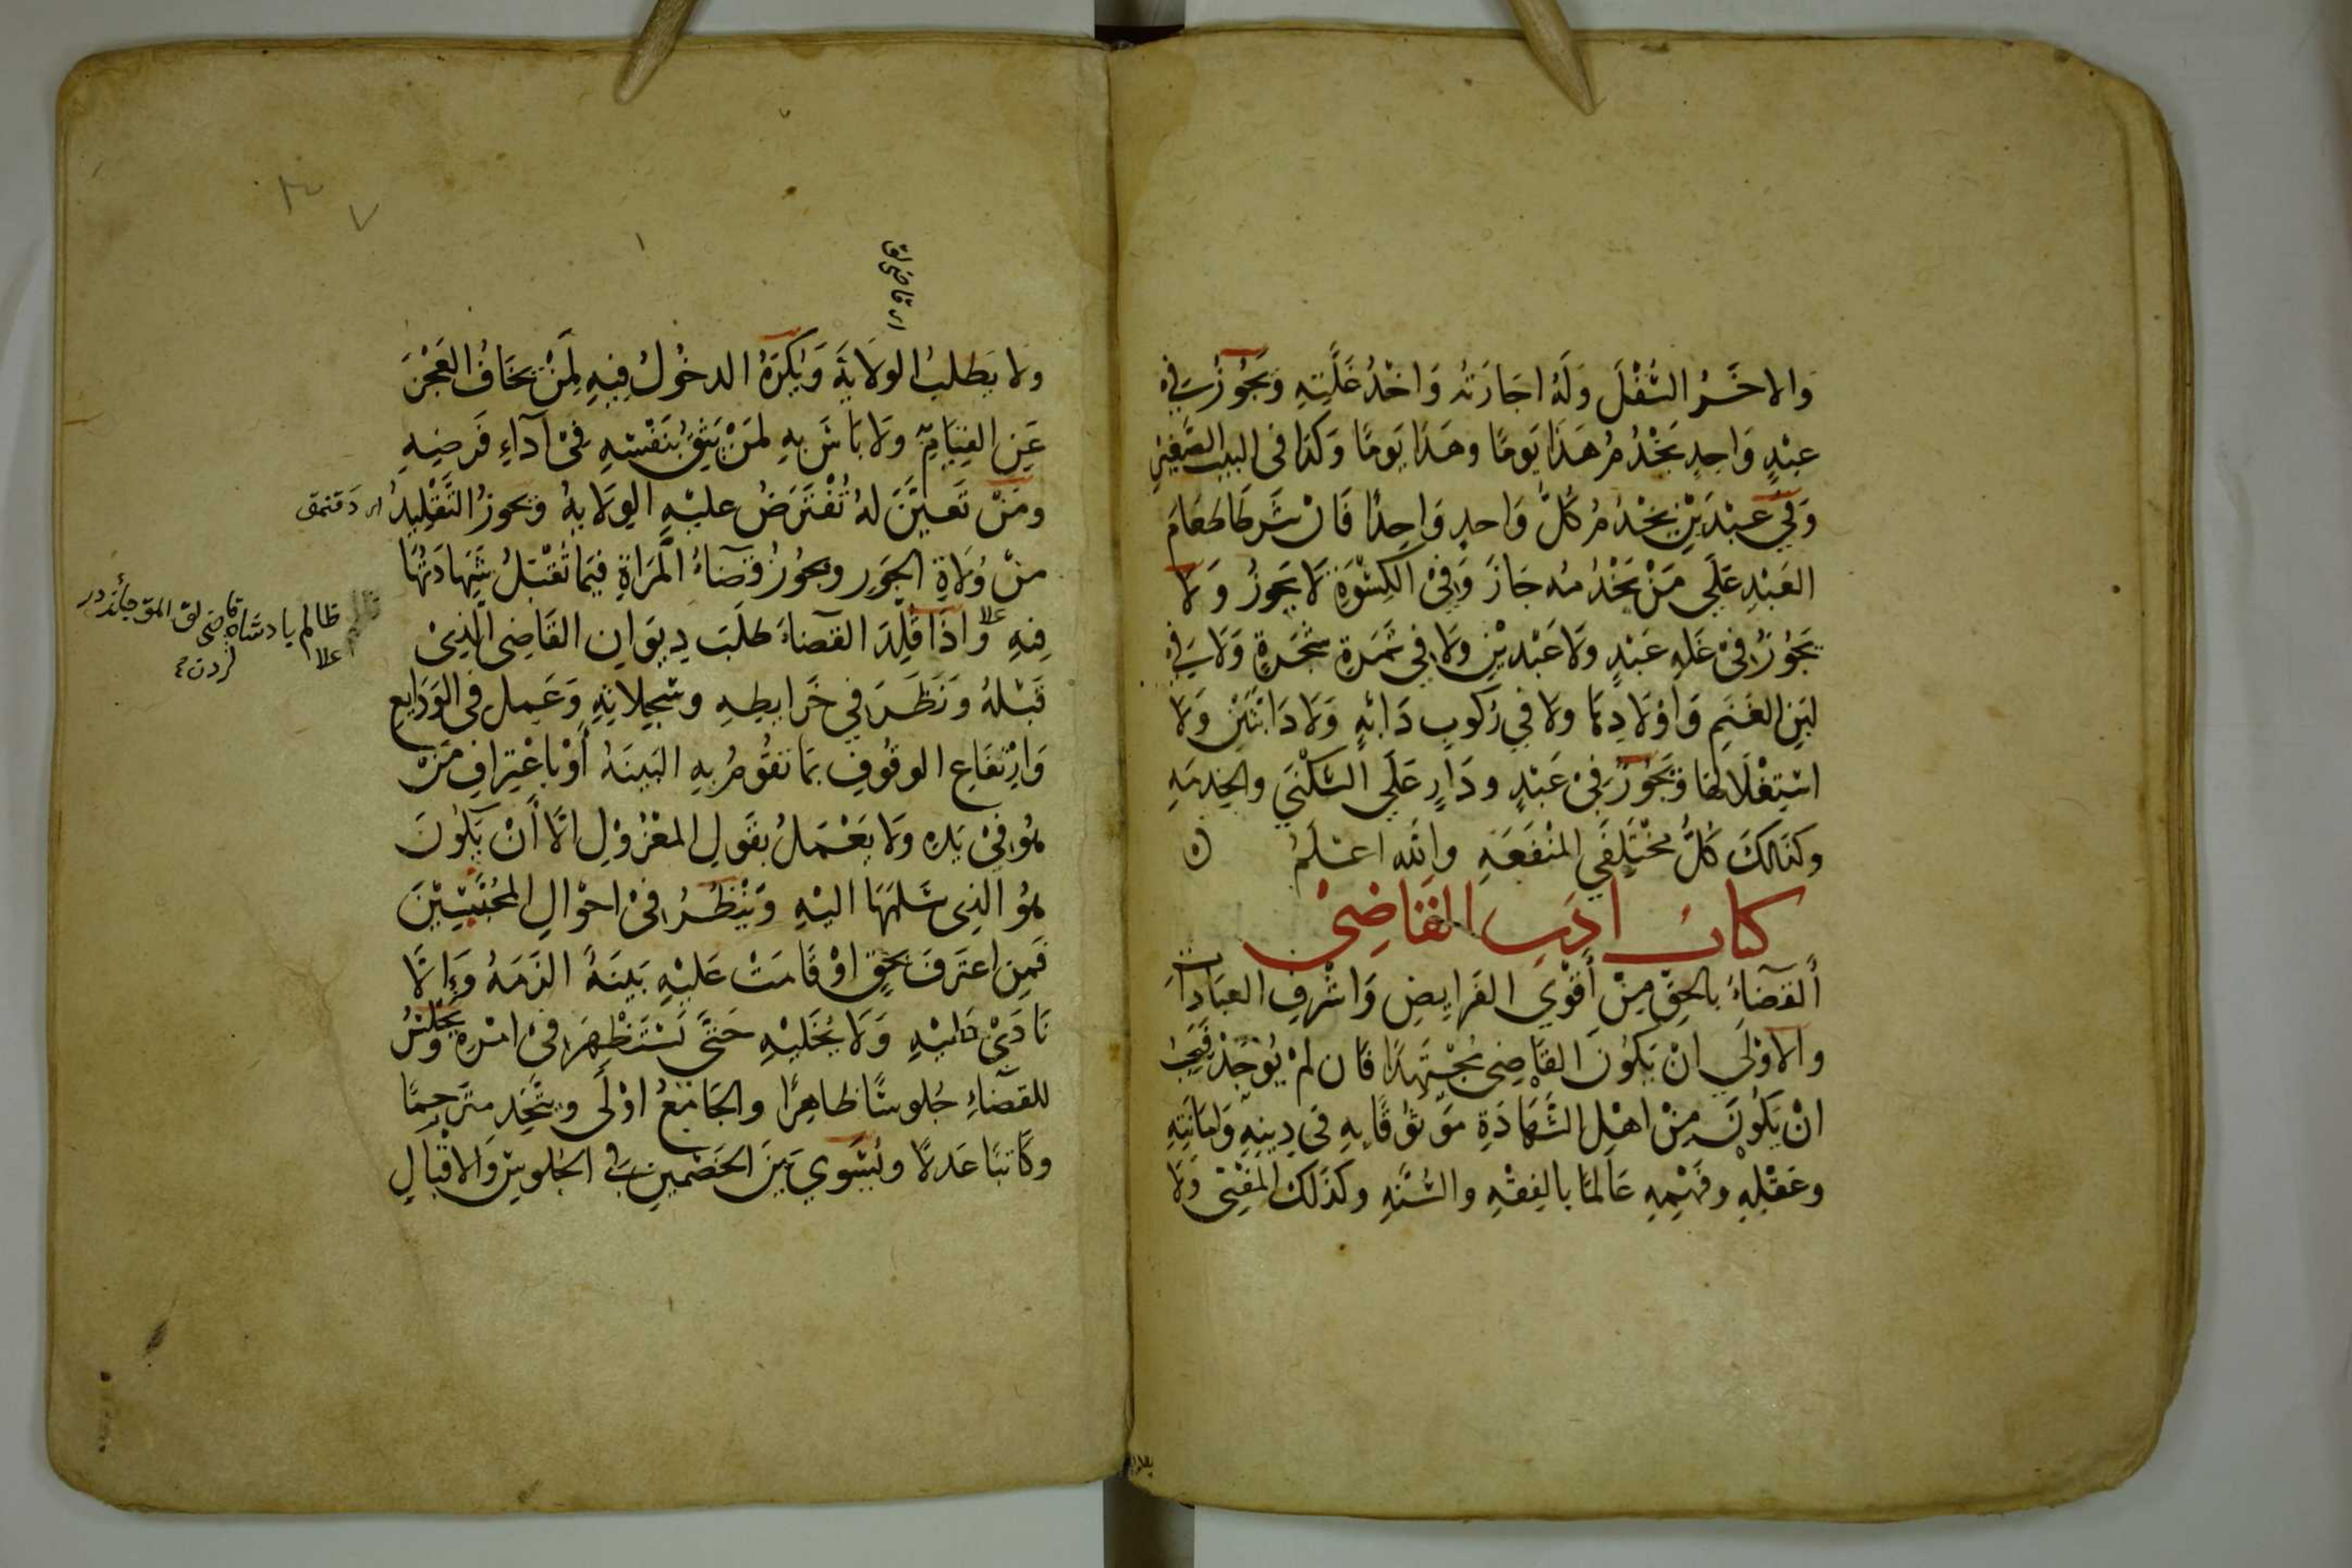 والاخَرُ السُّفْلَ وَلَهُ اجَارَتُه وَاخْذُ غَلَّتِهِ وَيَجُوزُ فِي
عبْدٍ وَاحِدٍ يَخْدُمُ هَذَا يَومًا وهَذَا يَومًا وَكَذَا فى البيت الصَّغِيْرِ
وَفِي عَبْدَيْنِ يَخْدُمُ كُلَّ وَاحدٍ وَاحِدًا فَانْ شَرطَا طَعَامَ
العَبْدِ عَلَى مَنْ يَخْدُمُه جَازَ وَفِيْ الكِسْوَةِ لَا يَجوزُ وَلَا
يَجُوْزُ فِيْ غَلةِ عَبْدٍ وَلَا عَبْدَيْنِ وَلَا فِي ثمَرَةِ شَجَرَةٍ وَلَا فِي
لبَنِ الغَنَمِ وَاوْلَادِهَا ولا فِي رُكوبِ دَابَّةٍ وَلَا دَابَّتَيْنِ وَلَا
اسْتِغْلَالهَا وَيَجُوزُ فِيْ عَبْدٍ ودَارٍ عَلَى السُّكْنَى والخِدمَةِ
وكذلكَ كُلُّ مُخْتَلِفَي المنْفَعَةِ والله اعْلَمُ
كتابُ ادَبِ القَاضِيْ
ألقضَاءُ بالحقِّ مِنْ أَقوَي الفَرايِضِ وَاشْرفِ العبَادَاتِ
والاوْلَي انْ يَكُونَ القَاضِى مُجْتَهِدًا فَان لمْ يُوْجَدْ فَيَجِبُ
انْ يَكُونَ مِنْ اهْلِ الشَّهَادَةِ مَوْثُوقًا بِهِ فى دِينِهِ وَامَانَتِهِ
وعَقْلِهِ وفَهْمِهِ عَالمًا بالفِقْهِ والسُّنَّةِ وكذَلكَ المفْتِى وَلَا
ولا يَطلبُ الولَايَةَ وَيُكْرَهُ الدخُولُ فِيهِ لِمَنْ يخَافُ العَجْزَ
عَنِ القِيَامِ وَلَا بَاسَ بِهِ لمَنْ يَثِقُ بنَفْسِهِ فِىْ آدَاءِ فَرضِهِ
ومَنْ تَعيَّنَ لهُ تُفْتَرَضُ عليْهِ الوِلَايةُ ويجوزُ التَّقْلِيدُ
منْ وُلَاةِ الجَورِ ويجُوزُ قضَاءُ المَرَاةِ فِيمَا تُقْبَلُ شَهَادَتُهَا
فِيهِ وَاذَا قُلِّدَ القضَاءَ طَلَبَ دِيوَان القَاضِى الَّذِىْ
قَبْلهُ وَنَظَرَ فِي خَرَايطِهِ وسِجِلاتِهِ وَعَمِلَ فى الوَدَايعِ
وَارْتفَاعِ الوقُوفِ بمَا تقُومُ بِهِ البَينَةُ أَوْ باعْتِرَافِ مَنْ
هُو فِيْ يَدِهِ وَلَا يَعْمَلُ بقَولِ المعْزُوْلِ الَّا أَنْ يَكُونَ
هُو الَّذِى سَلمَهَا اليْهِ وَيَنْظُرُ فِىْ احْوَالِ المُحْبَسِيْنَ
فَمنِ اعتَرفَ بحَقٍّ اوْ قَامَتْ عَليْهِ بَينَةٌ الزَمَهُ وَإلَّا
نَادَىْ عَليْهِ وَلَا يُخَليْهِ حَتَّى يَسْتَظْهِرَ فِىْ امْرِهِ وَيجْلِسُ
للقضَاءِ جُلُوسًا ظَاهِرًا والجَامِعُ اوْلَى ويتَّخِذ متَرجِمًا
وَكَاتبًا عَدلًا ويُسَوي بَيْنَ الخَصْمينِ فى الجُلوسِ وَالاقْبَالِ
قاضى لق
ظالم پادشاه
قاضى لق المق جائزدر